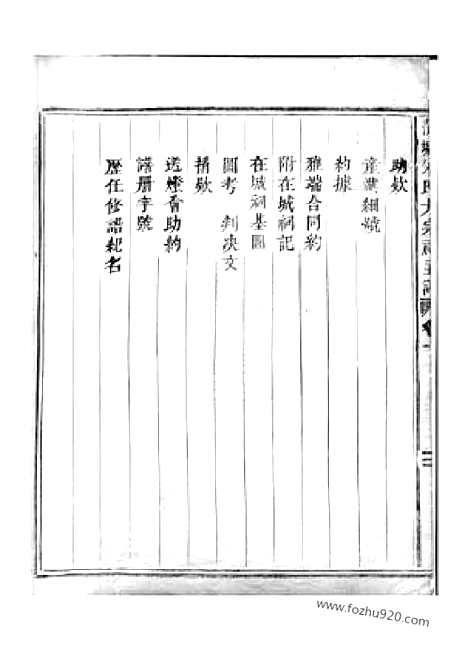 助欵
產業細號
約據
雅端合同約
附在城祠記
在城祠基圖
圖考 判决文
捐欵
送燈會助約
譜册字號
歷任修譜裁名
氏大宗
www.fozhu920.com